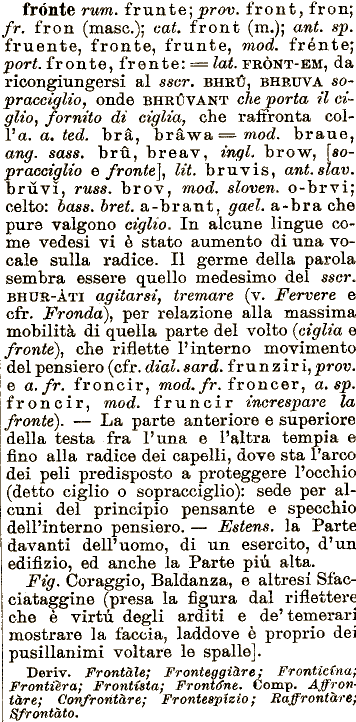 frónte rum. frunte; prov. front, fron;
fr. fron (masc.); cat. front (m.); ant. sp.
fruente, fronte, frunte, mod. frénte;
port. fronte, frente: = lat. FRÒNT-EM, da
ricongiungersi al sscr. BHRÛ, BHRUVA so-
pracciglio, onde BHRÛVANT che porta il ci-
glio, fornito di ciglia, che raffronta col-
l'a. a. ted. brâ, brâwa = mod. braue,
ang. sass. brû, breav, ingl. brow, [so-
pracciglio e fronte], lit. bruvis, ant. slav.
brŭvi, russ. brov, mod. sloven. o-brvi;
celto: bass. bret. a-brant, gael. a-bra che
pure valgono ciglio. In alcune lingue co-
me vedesi vi è stato aumento di una vo-
cale sulla radice. Il germe della parola
sembra essere quello medesimo del sscr.
BHUR-ÁTI agitarsi, tremare (v. Fervere e
cfr. Fronda), per relazione alla massima
mobilità di quella parte del volto (ciglia e
fronte), che riflette l'interno movimento
del pensiero (cfr. dial. sard. frunziri, prov.
e a. fr. froncir, mod. fr. froncer, a. sp.
froncir, mod. fruncir increspare la
fronte). — La parte anteriore e superiore
della testa fra l'una e l'altra tempia e
fino alla radice dei capelli, dove sta l'arco
dei peli predisposto a proteggere l'occhio
(detto ciglio o sopracciglio): sede per al-
cuni del principio pensante e specchio
dell'interno pensiero. — Estens. la Parte
davanti dell'uomo, di un esercito, d'un
edifizio, ed anche la Parte piú alta.
Fig. Coraggio, Baldanza, e altresì Sfac-
ciataggine (presa la figura dal riflettere
che è virtú degli arditi e de' temerari
mostrare la faccia, laddove è proprio dei
pusillanimi voltare le spalle].
Deriv. Frontàle; Fronteggiàre; Fronticína;
Frontièra; Frontísta; Frontóne. Comp. Affron-
tàre; Confrontàre; Frontespízio; Raffrontàre;
Sfrontàto.